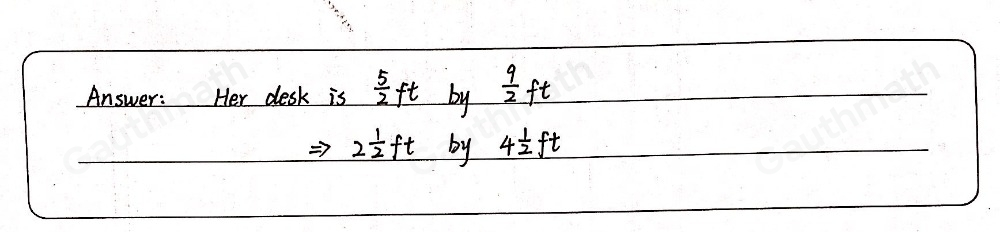 Answer: Her desk is 5/2 ft by 9/2 ft
⇒ 2 1/2 ft by 4 1/2 ft
Gauthmath
Gauthmath
Gauthmath